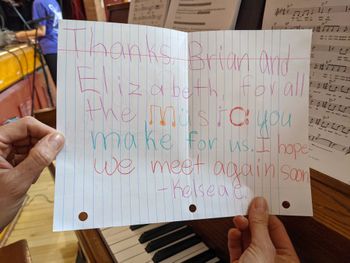 Thanks Brian and
Elizabeth for all
the music you
make for us. I hope
we meet again soon
- Kelsea